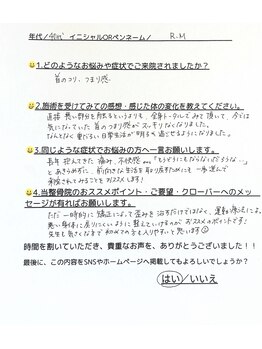 年代/40代 イニシャルORペンネーム/ R.M
1.どのようなお悩みや症状でご来院されましたか？
首のコリ、つまり感
2.施術を受けてみての感想・感じた体の変化を教えてください。
直接 悪い部分を触るというよりも、全身トータルしてみて頂いて、今では
気になっていた 首のつまり感が スッキリなくなりました。
なんとなく重だるい日常生活が 明るく過ごせるようになりました。
3.同じような症状でお悩みの方へ一言お願いします。
長年 抱えてきた 痛み、不快感 „„„「もうどうにもならないだろうな...」
とあきらめずに、前向きな生活を取り戻すためにも 一歩進んで
来院されてみることをおススメします！
4.当整骨院のおススメポイント・ご要望・クローバーへのメッ
セージが有ればお願いします。
ただ 一時的に 矯正によって歪みを 治すだけではなく、運動療法による
悪い身体に戻りにくいように 整えていけるのが おススメのポイントです！
先生も気さくなので初めての方も入りやすいと思います
時間を割いていただき、貴重なお声を、ありがとうございました！！
最後に、この内容をSNSやホームページへ掲載してもよろしいでしょうか？
はい／いいえ